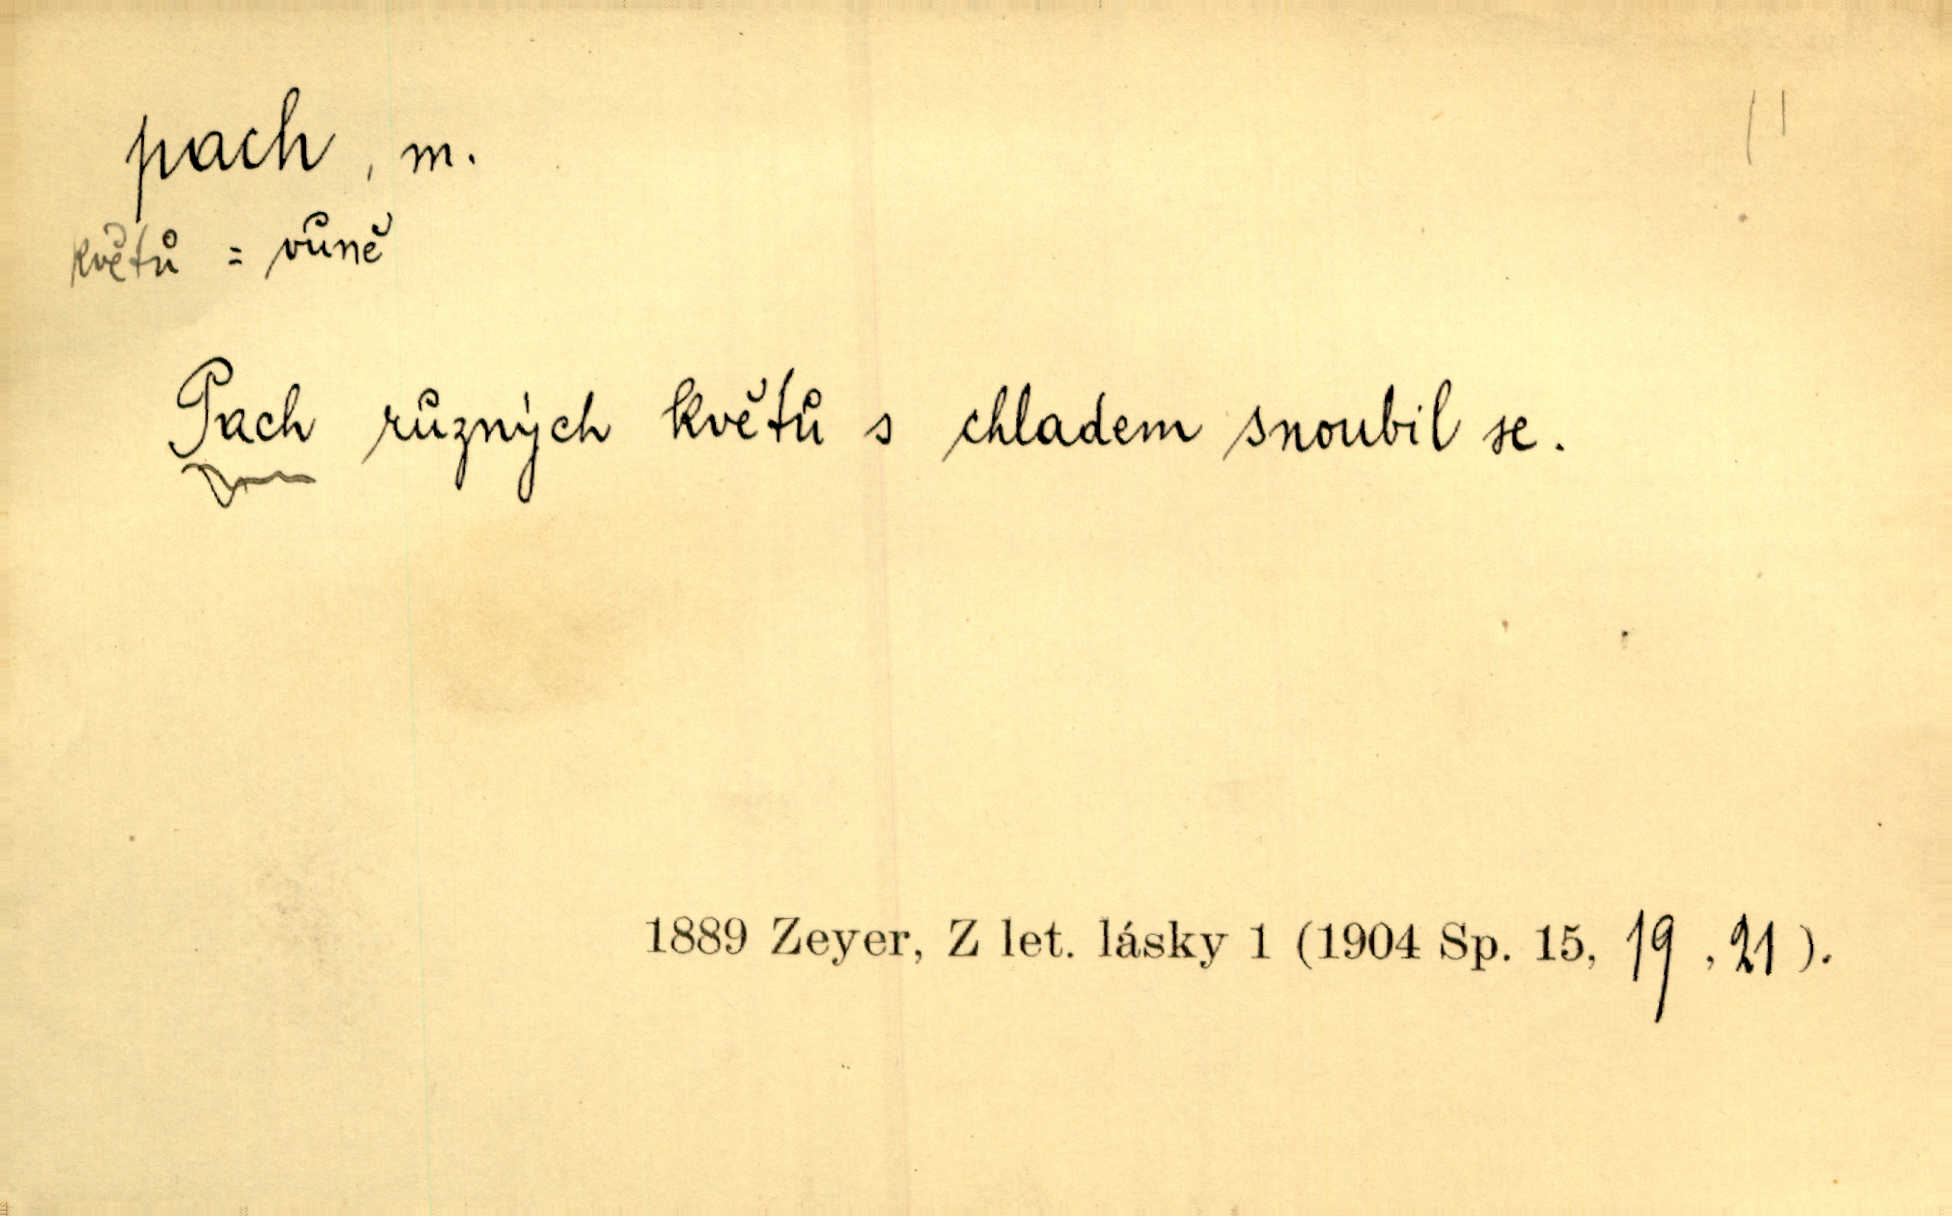 pach, m.
květů = vůně
Pach různých květů s chladem snoubil se.
1889 Zeyer, Z let. lásky 1 (1904 Sp. 15, 19, 21).